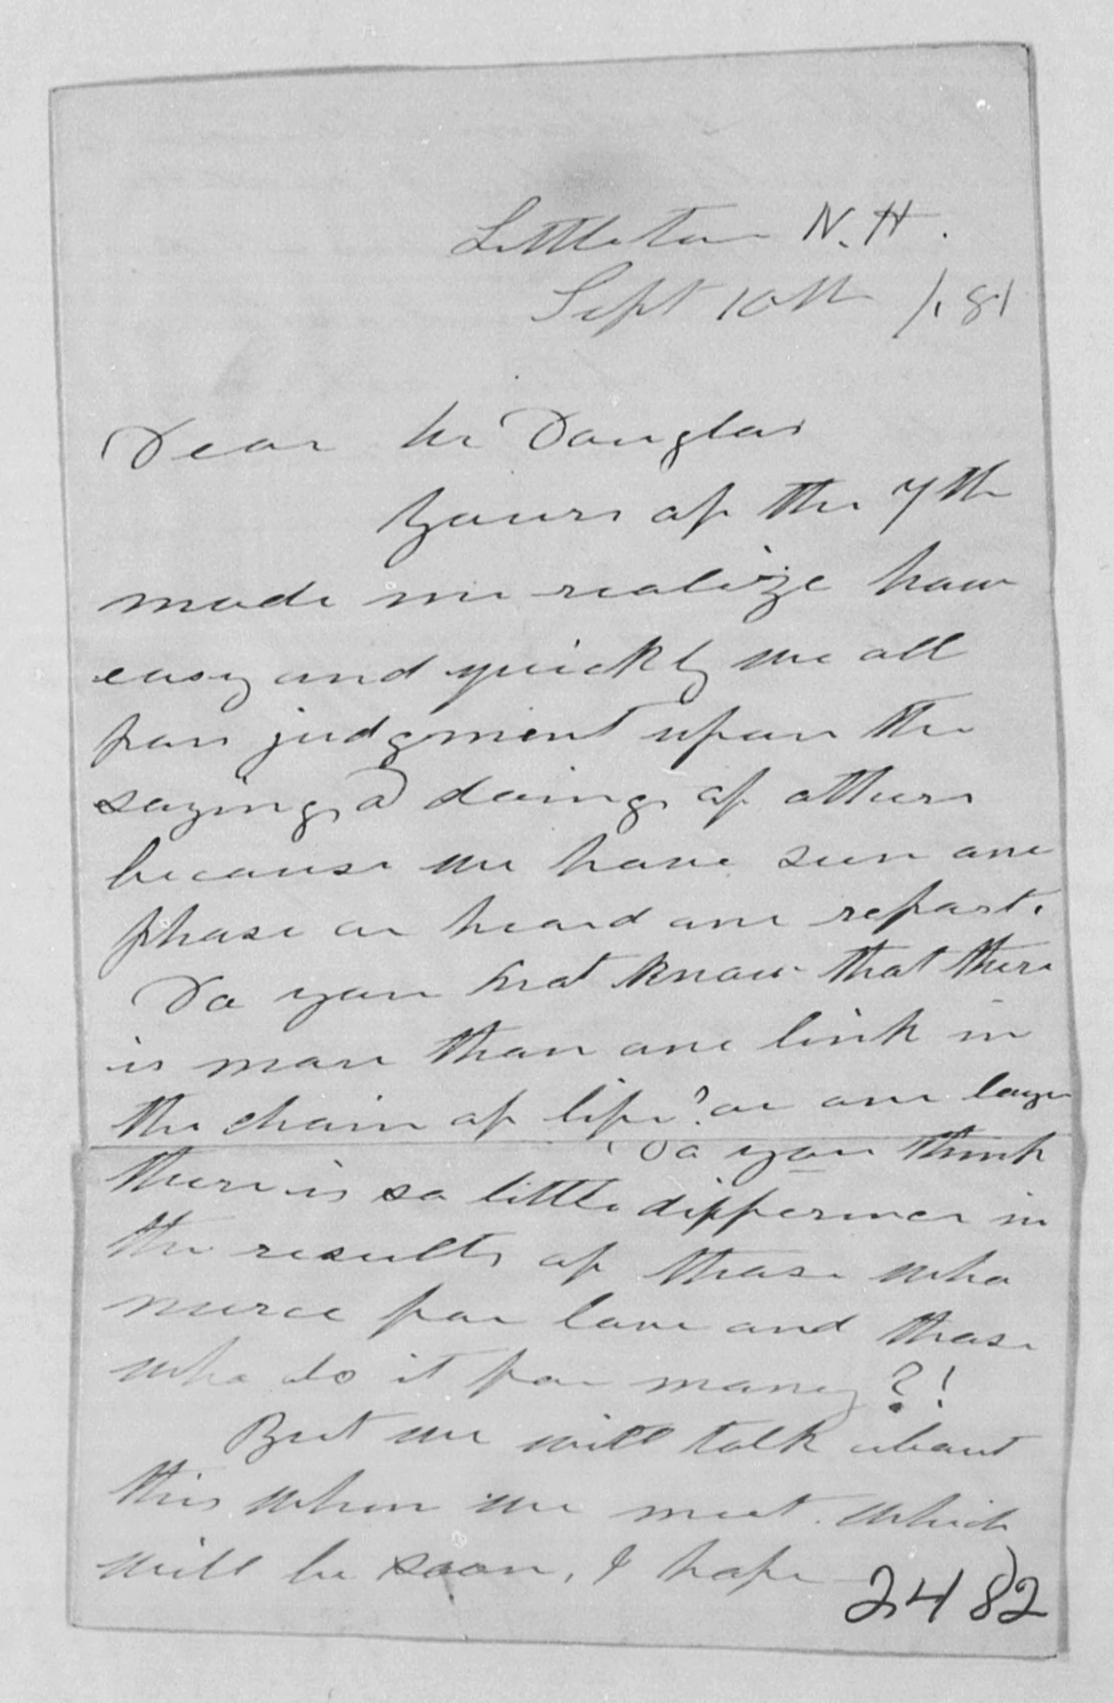 Littleton N.H.
Sept 10th /81
Dear Mr Douglas
Yours of the 7th
made me realize how
easy and quickly we all
pass judgment upon the
sayings & doings of others
because we have seen one
phase or heard one report.
Do you not know that there
is more than one link in
the chain of life? or one layer
Do you think
there is so little difference in
the results of those who
nurce for love and those
who do it for money?!
But we will talk about
this when we meet. which
will be soon, I hope
2482